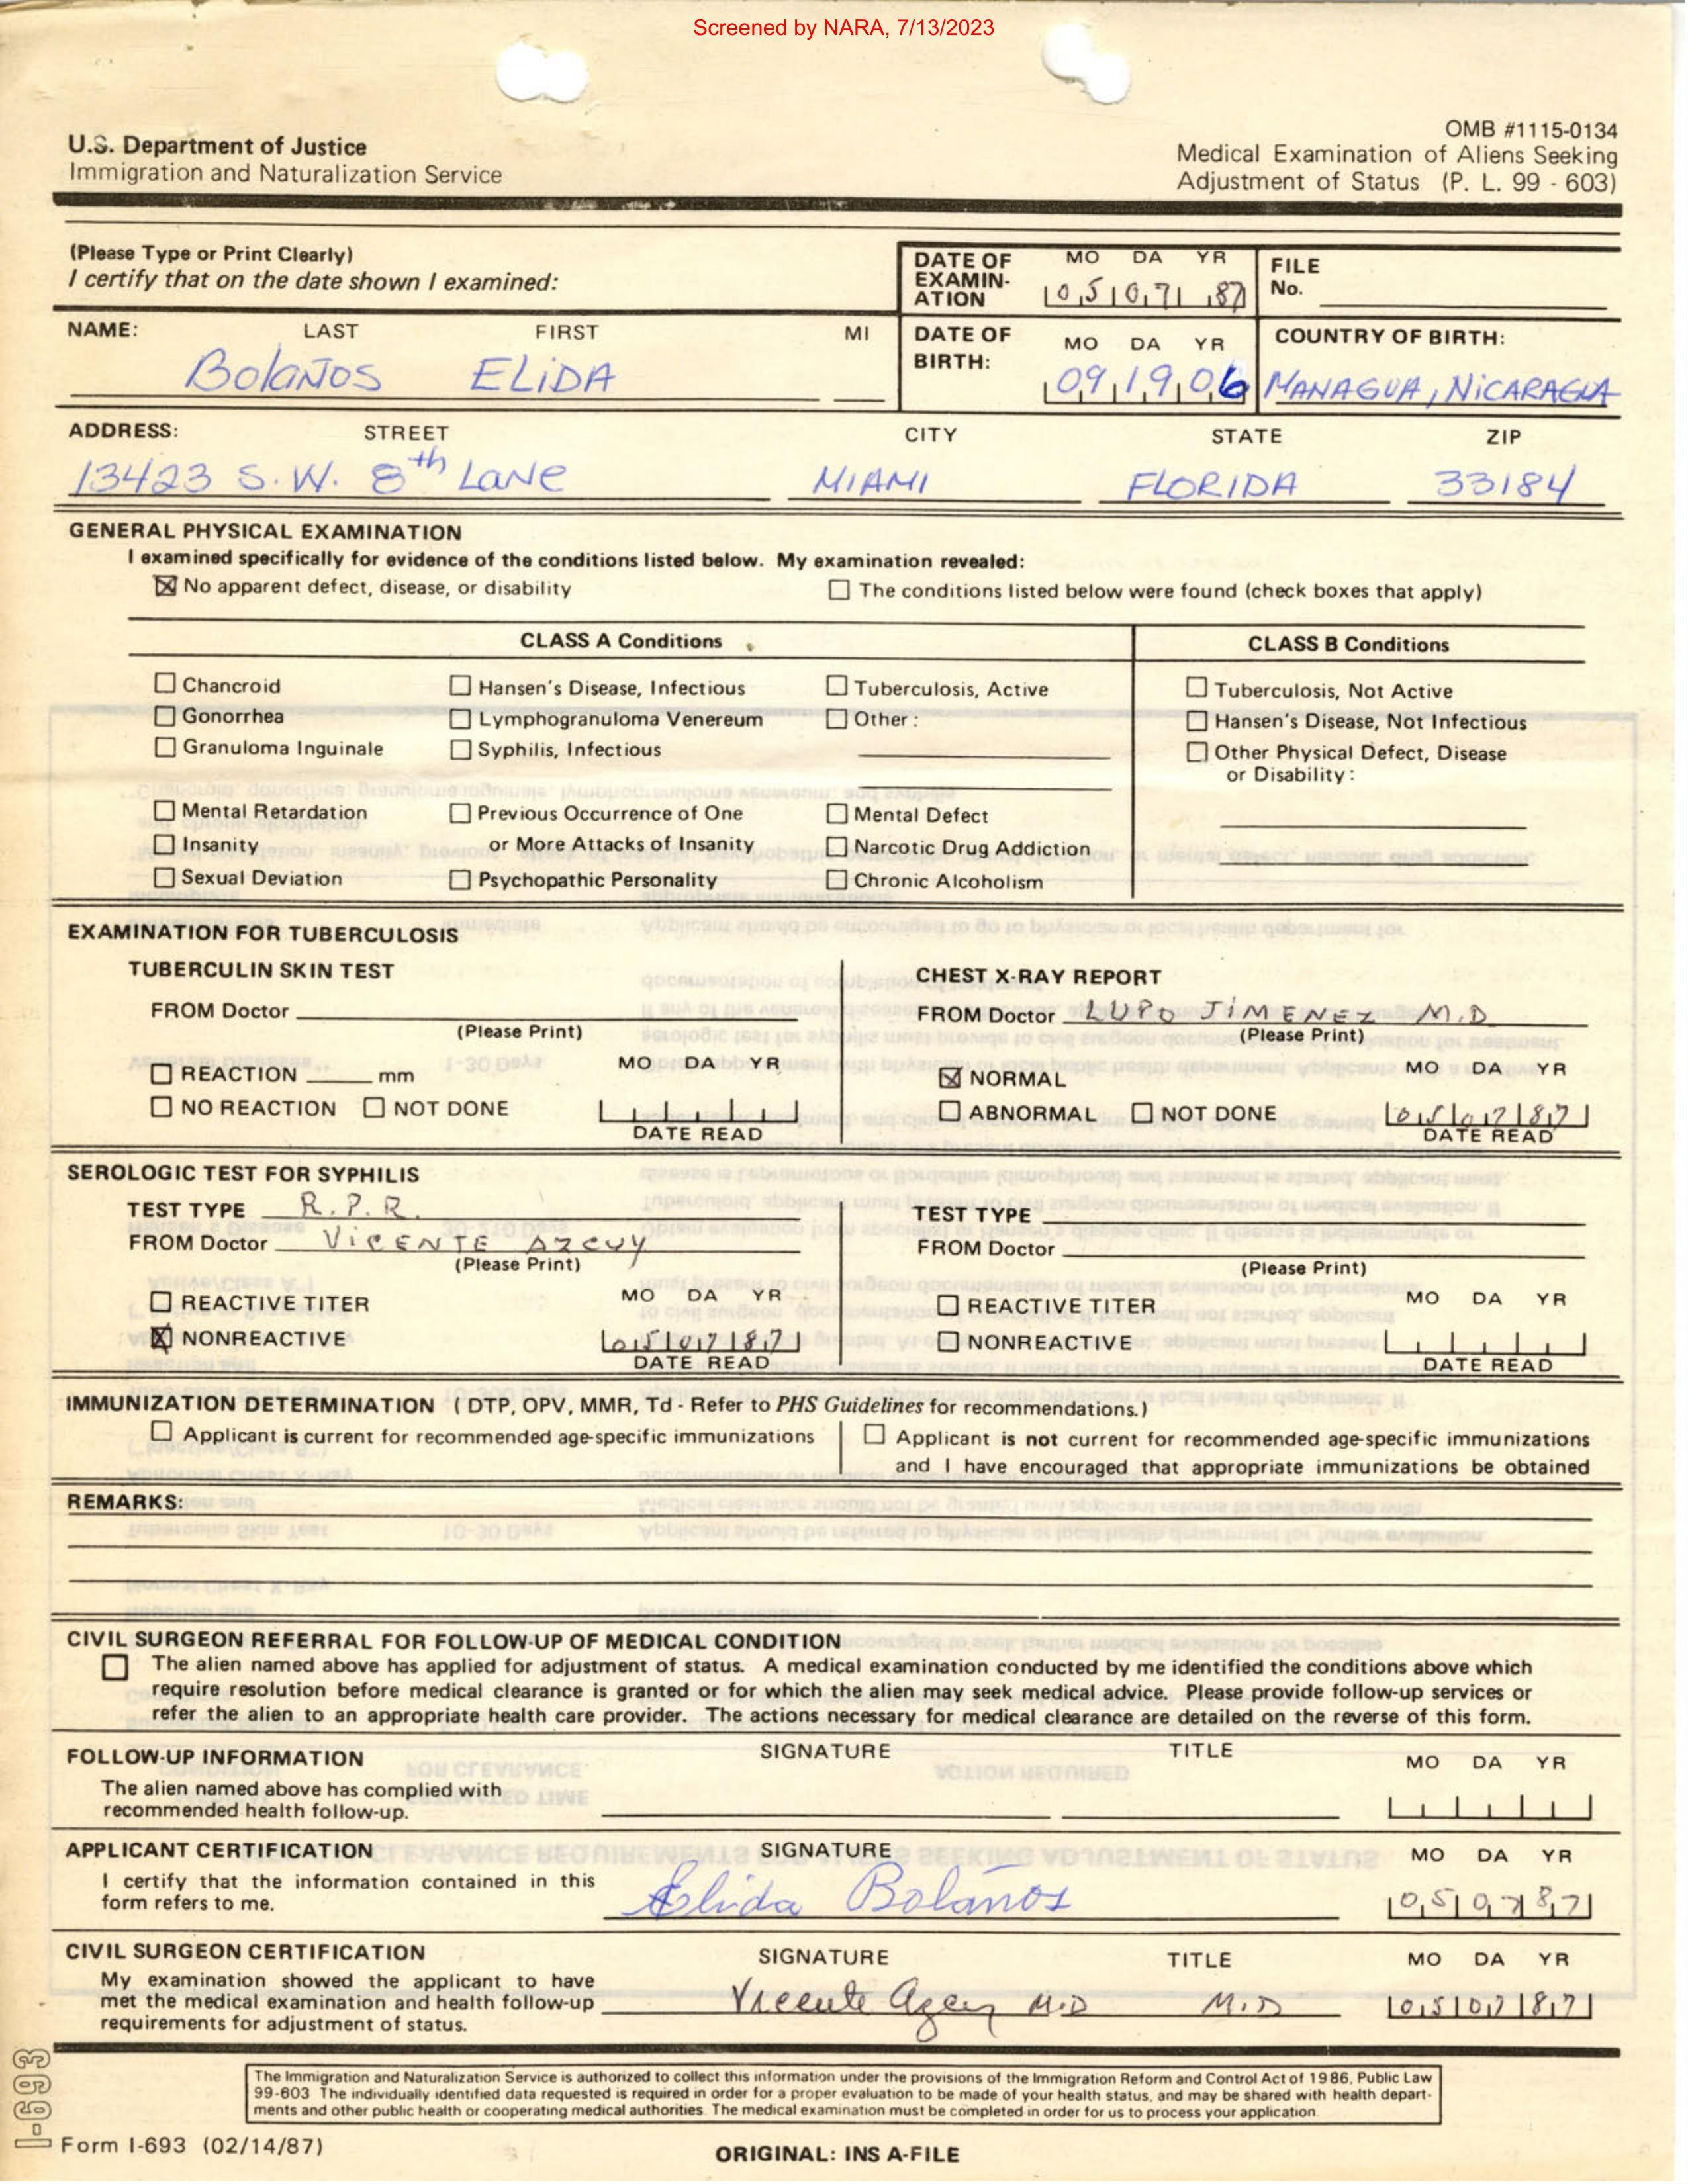 Screened by NARA, 7/13/2023
U.S. Department of Justice
Immigration and Naturalization Service
OMB #1115-0134
Medical Examination of Aliens Seeking
Adjustment of Status (P. L. 99 - 603)
(Please Type or Print Clearly)
I certify that on the date shown I examined:
DATE OF EXAMIN-ATION MO DA YR 05 07 87
FILE No.
NAME: LAST FIRST MI
Bolaños ELiDA
DATE OF BIRTH: MO DA YR 09 19 06
COUNTRY OF BIRTH:
MANAGUA, NiCARAGUA
ADDRESS: STREET CITY STATE ZIP
13423 S.W. 8th LANe MIAMI FLORIDA 33184
GENERAL PHYSICAL EXAMINATION
I examined specifically for evidence of the conditions listed below. My examination revealed:
☒ No apparent defect, disease, or disability ☐ The conditions listed below were found (check boxes that apply)
CLASS A Conditions CLASS B Conditions
☐ Chancroid ☐ Hansen's Disease, Infectious ☐ Tuberculosis, Active ☐ Tuberculosis, Not Active
☐ Gonorrhea ☐ Lymphogranuloma Venereum ☐ Other: ☐ Hansen's Disease, Not Infectious
☐ Granuloma Inguinale ☐ Syphilis, Infectious ☐ Other Physical Defect, Disease
or Disability:
☐ Mental Retardation ☐ Previous Occurrence of One ☐ Mental Defect
☐ Insanity or More Attacks of Insanity ☐ Narcotic Drug Addiction
☐ Sexual Deviation ☐ Psychopathic Personality ☐ Chronic Alcoholism
EXAMINATION FOR TUBERCULOSIS
TUBERCULIN SKIN TEST
FROM Doctor
(Please Print)
MO DA YR
☐ REACTION mm
☐ NO REACTION ☐ NOT DONE
DATE READ
CHEST X-RAY REPORT
FROM Doctor LUPO JiMENEZ M.D
(Please Print)
MO DA YR
☒ NORMAL
☐ ABNORMAL ☐ NOT DONE 05 07 87
DATE READ
SEROLOGIC TEST FOR SYPHILIS
TEST TYPE R.P.R.
FROM Doctor ViCENTE AZCUY
(Please Print)
MO DA YR
☐ REACTIVE TITER
☒ NONREACTIVE 05 07 87
DATE READ
TEST TYPE
FROM Doctor
(Please Print)
MO DA YR
☐ REACTIVE TITER
☐ NONREACTIVE
DATE READ
IMMUNIZATION DETERMINATION ( DTP, OPV, MMR, Td - Refer to PHS Guidelines for recommendations.)
☐ Applicant is current for recommended age-specific immunizations
☐ Applicant is not current for recommended age-specific immunizations
and I have encouraged that appropriate immunizations be obtained
REMARKS:
CIVIL SURGEON REFERRAL FOR FOLLOW-UP OF MEDICAL CONDITION
☐ The alien named above has applied for adjustment of status. A medical examination conducted by me identified the conditions above which
require resolution before medical clearance is granted or for which the alien may seek medical advice. Please provide follow-up services or
refer the alien to an appropriate health care provider. The actions necessary for medical clearance are detailed on the reverse of this form.
FOLLOW-UP INFORMATION SIGNATURE TITLE MO DA YR
The alien named above has complied with
recommended health follow-up.
APPLICANT CERTIFICATION SIGNATURE MO DA YR
I certify that the information contained in this
form refers to me. Elida Bolaños 05 07 87
CIVIL SURGEON CERTIFICATION SIGNATURE TITLE MO DA YR
My examination showed the applicant to have
met the medical examination and health follow-up Vicente Azcuy M.D M.D 05 07 87
requirements for adjustment of status.
The Immigration and Naturalization Service is authorized to collect this information under the provisions of the Immigration Reform and Control Act of 1986, Public Law
99-603 The individually identified data requested is required in order for a proper evaluation to be made of your health status, and may be shared with health depart-
ments and other public health or cooperating medical authorities. The medical examination must be completed in order for us to process your application.
I-693
Form I-693 (02/14/87)
ORIGINAL: INS A-FILE